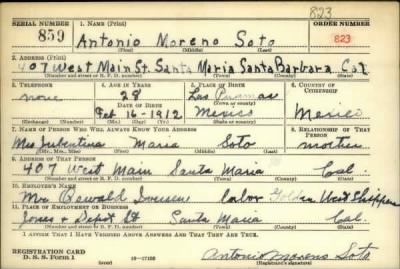 823
SERIAL NUMBER 1. NAME (Print) ORDER NUMBER
859 Antonio Moreno Soto 823
(First) (Middle) (Last)
2. ADDRESS (Print)
407 West Main St. Santa Maria Santa Barbara Cal
(Number and street or R. F. D. number) (Town) (County) (State)
3. TELEPHONE 4. AGE IN YEARS 5. PLACE OF BIRTH 6. COUNTRY OF CITIZENSHIP
none 28 Las
DATE OF BIRTH (Town or county)
Feb 16-1912 Mexico Mexico
(Exchange) (No.) (Mo.) (Day) (Yr.) (State or country)
7. NAME OF PERSON WHO WILL ALWAYS KNOW YOUR ADDRESS 8. RELATIONSHIP OF THAT PERSON
Mrs Maria Soto mother
(Mr., Mrs., Miss) (First) (Middle) (Last)
9. ADDRESS OF THAT PERSON
407 West Main Santa Maria Cal.
(Number and street or R. F. D. number) (Town) (County) (State)
10. EMPLOYER'S NAME
Mr Oswald labor Golden West
11. PLACE OF EMPLOYMENT OR BUSINESS
Jones & Depot St Santa Maria Cal.
(Number and street or R. F. D. number) (Town) (County) (State)
I AFFIRM THAT I HAVE VERIFIED ABOVE ANSWERS AND THAT THEY ARE TRUE.
REGISTRATION CARD
D. S. S. Form 1 16-17105 Antonio Moreno Soto
(over) (Registrant's signature)